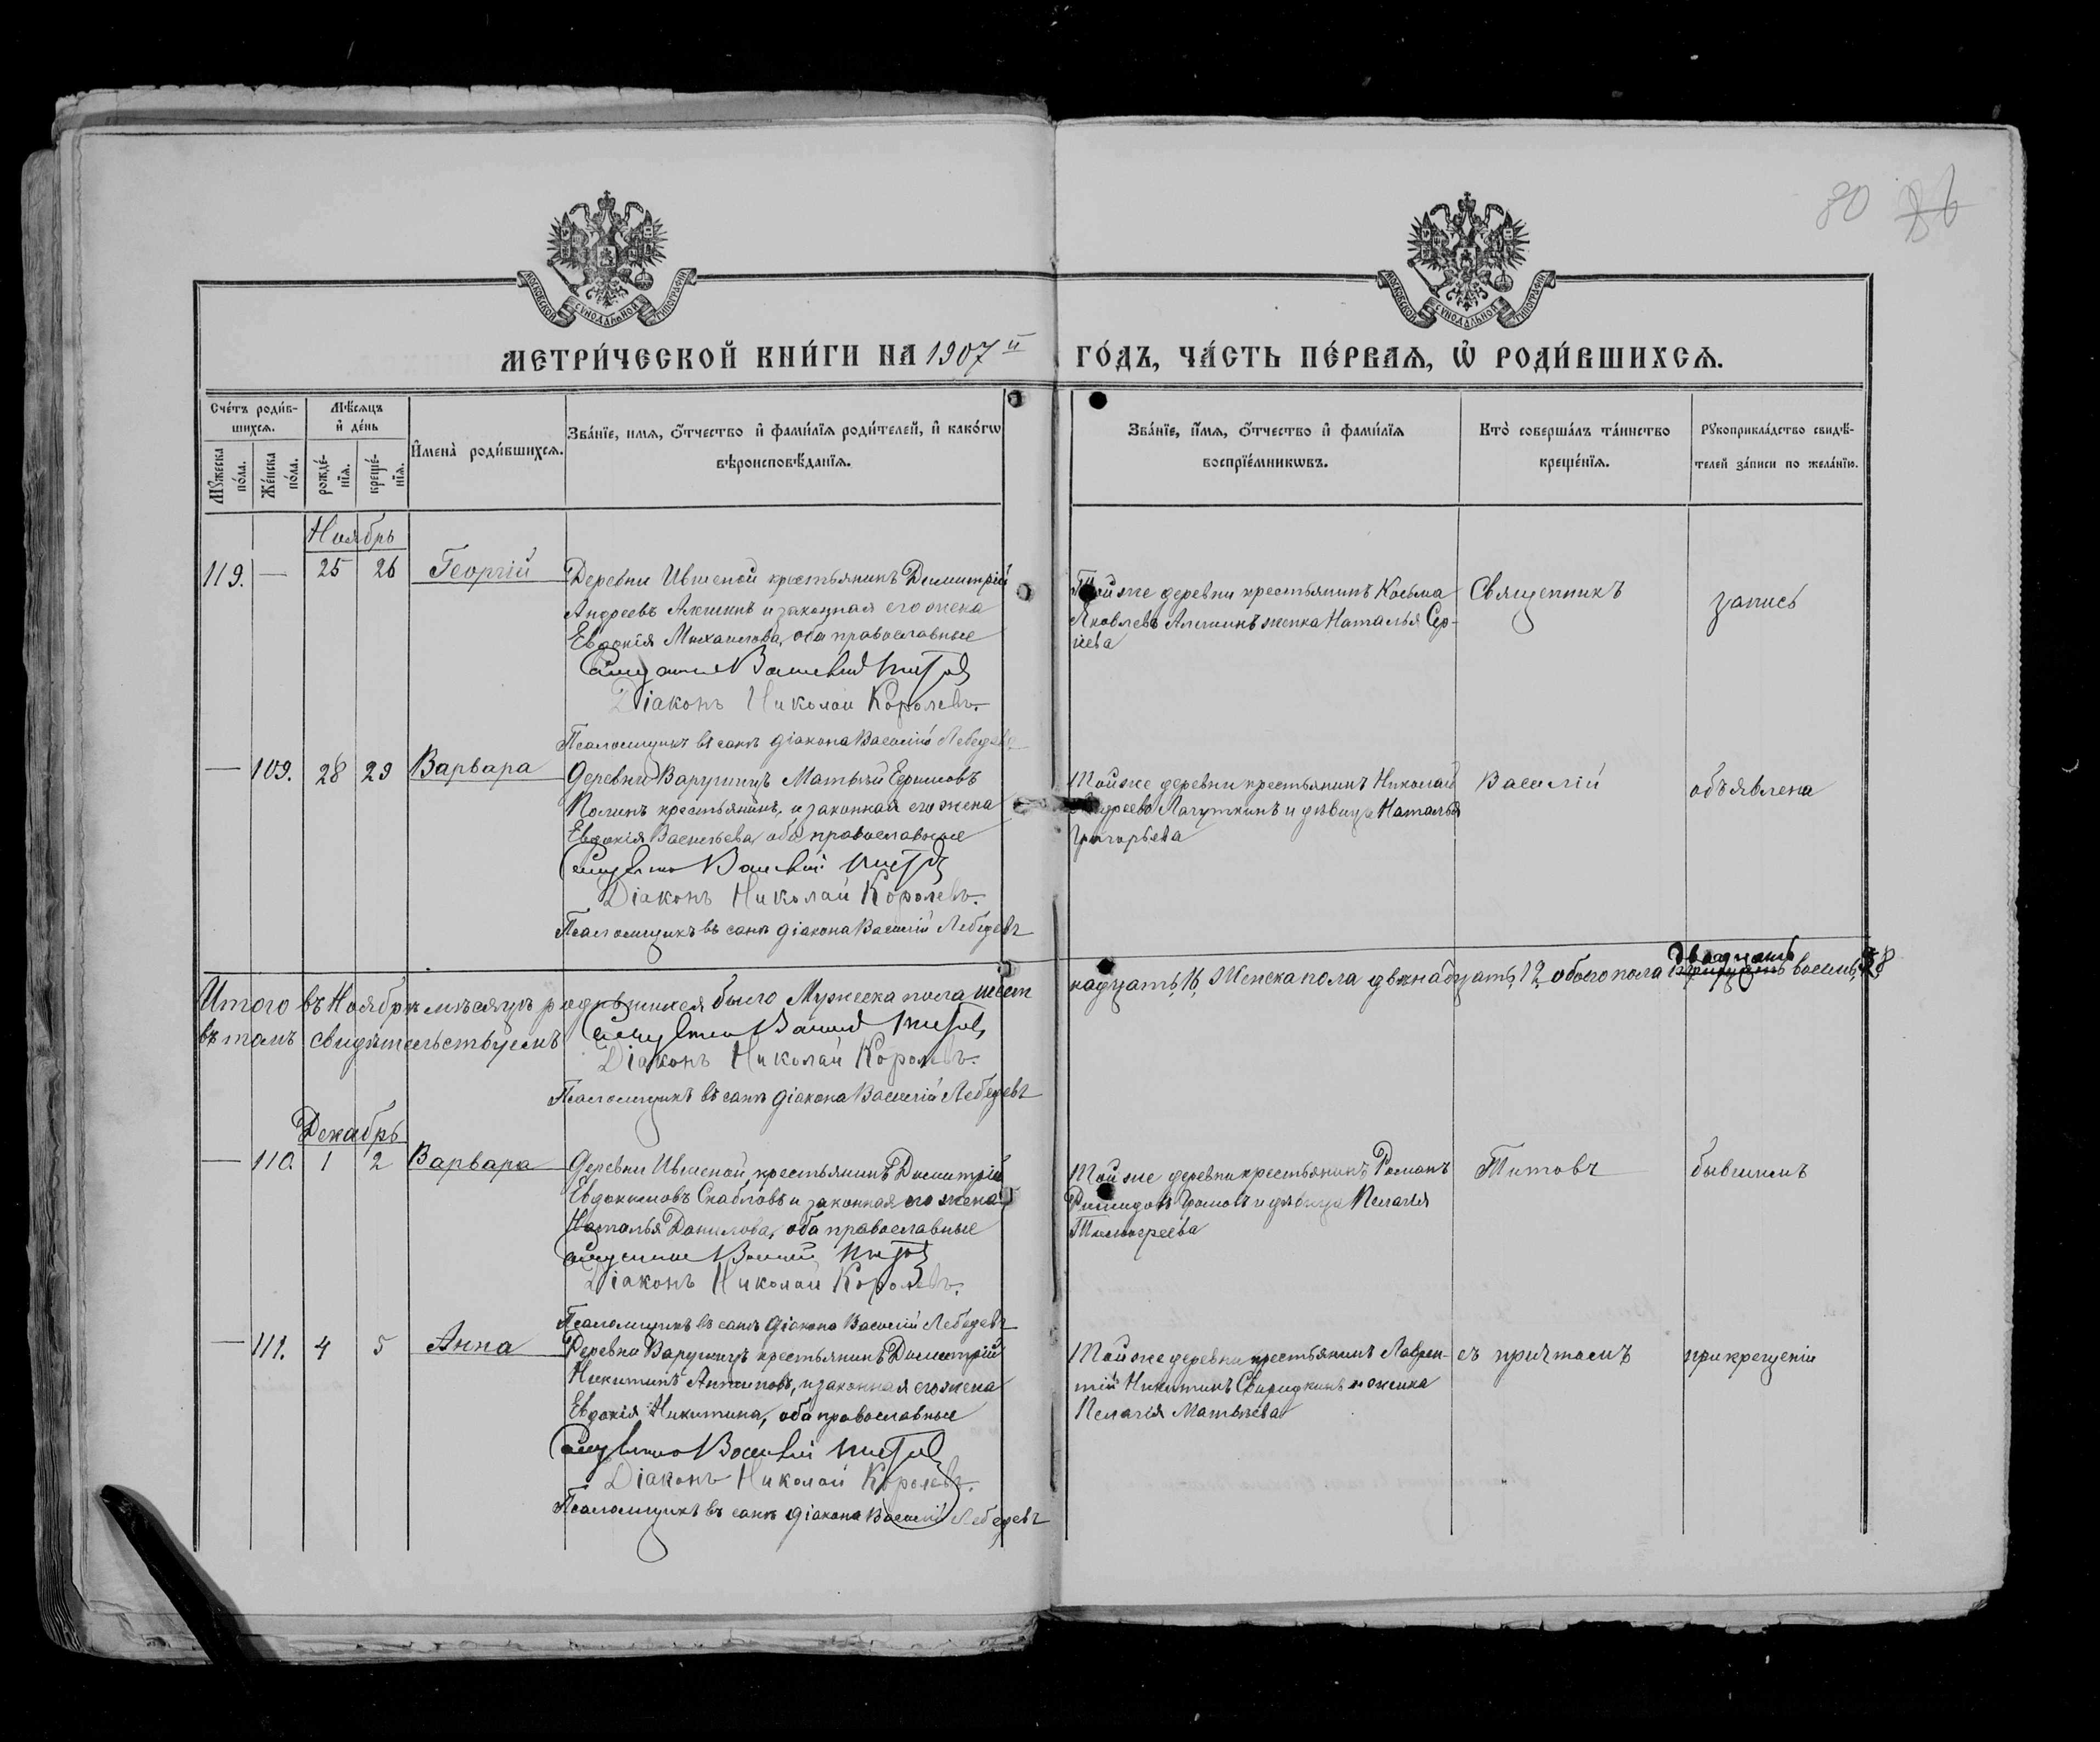 80 86
МОСКОВСКОЙ СѴНОДАЛЬНОЙ ТИПОГРАФІИ
МОСКОВСКОЙ СѴНОДАЛЬНОЙ ТИПОГРАФІИ
МЕТРИ́ЧЕСКОЙ КНИ́ГИ НА 1907й ГО́ДЪ, ЧА́СТЬ ПЕ́РВАЯ, Ѡ҆ РОДИ́ВШИХСЯ.
Сче́тъ роди́в-
шихся.
Мѣ́сяцъ
и҆ де́нь
Мꙋ́жеска по́ла.
Же́нска по́ла.
рожде́-
нїя.
креще́-
нїя.
И҆мена̀ роди́вшихся.
Зва́нїе, имя, ѻ҆́тчество и҆ фами́лїя роди́телей, и҆ како́гѡ
вѣроисповѣ́данїя.
Зва́нїе, и҆́мя, ѻ҆́тчество и҆ фами́лїя
воспрїе́мникѡвъ.
Кто̀ соверша́лъ та́инство
креще́нїя.
Рꙋкоприкла́дство свидѣ́-
телей за́писи по жела́нїю.
Ноябрь
119. — 25 26 Георгій
Деревни Ившеной крестьянинъ Димитрій
Андреевъ Алешинъ и законная его жена
Евдокія Михаилова, оба православные
Священникъ Василий Титовъ
Діаконъ Николай Королевъ.
Псаломщикъ въ санѣ діакона Василій Лебедевъ
Той же деревни крестьянинъ Косьма
Яковлевъ Алешинъ женка Наталья Сер-
гіева
Священникъ
запись
— 109. 28 29 Варвара
Деревни Варушицъ Матвѣй Ефимовъ
крестьянинъ, и законная его жена
Евдокія Васильева, оба православные
Священникъ Василий Титовъ
Діаконъ Николай Королевъ.
Псаломщикъ въ санѣ діакона Василій Лебедевъ
Той же деревни крестьянинъ Николай
Андреевъ Лачуткинъ и дѣвица Наталья
Григорьева
Василій
объявлена
Итого въ Ноябрѣ мѣсяцѣ родившихся было Мужеска пола шест
надцать, 16, Женска пола двѣнадцать, 12, обоего пола двадцать восемь, 28
въ томъ свидѣтельствуемъ
Священникъ Василий Титовъ
Діаконъ Николай Королевъ.
Псаломщикъ въ санѣ діакона Василій Лебедевъ
Декабрь
— 110. 1 2 Варвара
Деревни Ившеной, крестьянинъ Димитрій
Евдокимовъ и законная его жена
Наталья Данилова, оба православные
Священникъ Василий Титовъ
Діаконъ Николай Королевъ.
Псаломщикъ въ санѣ діакона Василій Лебедевъ
Той же деревни крестьянинъ Романъ
и дѣвица Пелагія
Тимофеева
Титовъ
бывшимъ
— 111. 4 5 Анна
Деревни Варушицъ крестьянинъ Димитрій
Никитинъ Антиповъ, и законная его жена
Евдокія Никитина, оба православные
Священникъ Василий Титовъ
Діаконъ Николай Королевъ.
Псаломщикъ въ санѣ діакона Василій Лебедевъ
Той же деревни крестьянинъ Лаврен-
тій Никитинъ женка
Пелагія Матвѣева
съ причтомъ
при крещеніи